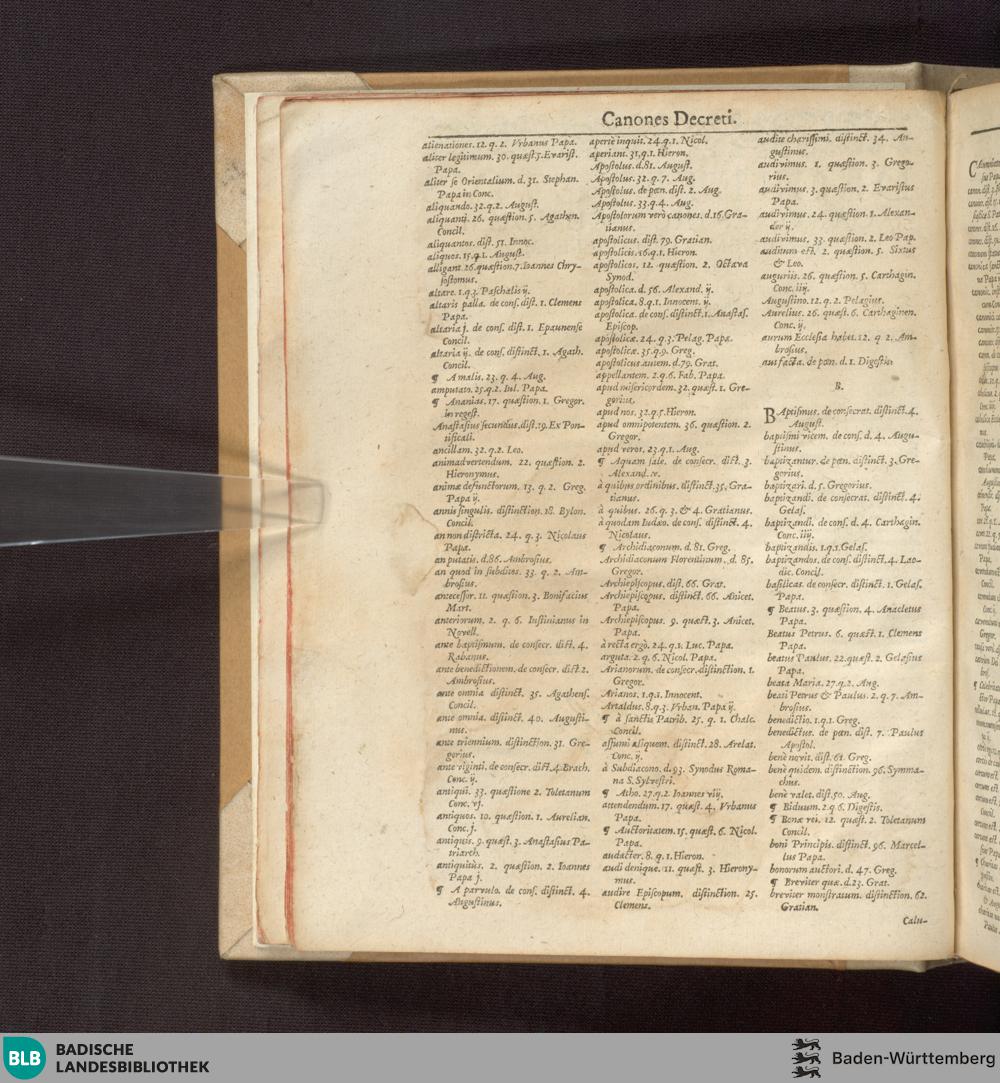 Canones Decreti.
alienationes. 12. q. 2. Vrbanus Papa.
aliter legitimum. 30. quæst. 5. Evarist.
Papa.
aliter se Orientalium. d. 31. Stephan.
Papa in Conc.
aliquando. 32. q. 2. August.
aliquanti. 26. quæstion. 5. Agathen.
Concil.
aliquantos. dist. 51. Innoc.
aliquos. 15. q. 1. August.
alligant. 26. quæstion. 7. Ioannes Chry-
sostomus.
altare. 1. q. 3. Paschalis ij.
altaris palla. de cons. dist. 1. Clemens
Papa.
altaria j. de cons. dist. 1. Epaunense
Concil.
altaria ij. de cons. distinct. 1. Agath.
Concil.
¶ A malis. 23. q. 4. Aug.
amputato. 25. q. 2. Iul. Papa.
¶ Ananias. 17. quæstion. 1. Gregor.
in regest.
Anastasius secundus. dist. 19. Ex Pon-
tificali.
ancillam. 32. q. 2. Leo.
animadvertendum. 22. quæstion. 2.
Hieronymus.
animæ defunctorum. 13. q. 2. Greg.
Papa ij.
annis singulis. distinction. 18. Bylon.
Concil.
an non districta. 24. q. 3. Nicolaus
Papa.
an putatis. d. 86. Ambrosius.
an quod in subditos. 33. q. 2. Am-
brosius.
antecessor. 11. quæstion. 3. Bonifacius
Mart.
anteriorum. 2. q. 6. Iustinianus in
Novell.
ante baptismum. de consecr. dist. 4.
Rabanus.
ante benedictionem. de consecr. dist. 2.
Ambrosius.
ante omnia distinct. 35. Agathens.
Concil.
ante omnia. distinct. 40. Augusti-
nus.
ante triennium. distinction. 31. Gre-
gorius.
ante viginti. de consecr. dist. 4. Brach.
Conc. ij.
antiqui. 33. quæstione 2. Toletanum
Conc. vj.
antiquos. 10. quæstion. 1. Aurelian.
Conc. j.
antiquis. 9. quæst. 3. Anastasius Pa-
triarch.
antiquitùs. 2. quæstion. 2. Ioannes
Papa j.
¶ A parvulo. de cons. distinct. 4.
Augustinus.
apertè inquit. 24. q. 1. Nicol.
aperiant. 31. q. 1. Hieron.
Apostolus. d. 81. August.
Apostolus. 32. q. 7. Aug.
Apostolus. de pœn. dist. 2. Aug.
Apostolus. 33. q. 4. Aug.
Apostolorum verò canones. d. 16. Gra-
tianus.
apostolicus. dist. 79. Gratian.
apostolicis. 16. q. 1. Hieron.
apostolicos. 12. quæstion. 2. Octava
Synod.
apostolica. d. 56. Alexand. ij.
apostolica. 8. q. 1. Innocent. ij.
apostolica. de cons. distinct. 1. Anastas.
Episcop.
apostolicæ. 24. q. 3. Pelag. Papa.
apostolicæ. 35. q. 9. Greg.
apostolicæ autem. d. 79. Grat.
appellantem. 2. q. 6. Fab. Papa.
apud misericordem. 32. quæst. 1. Gre-
gorius.
apud nos. 32. q. 5. Hieron.
apud omnipotentem. 36. quæstion. 2.
Gregor.
apud veros. 23. q. 1. Aug.
¶ Aquam sale. de consecr. dist. 3.
Alexand. iv.
à quibus ordinibus. distinct. 35. Gra-
tianus.
à quibus. 26. q. 3. & 4. Gratianus.
à quodam Iudæo. de cons. distinct. 4.
Nicolaus.
¶ Archidiaconum. d. 81. Greg.
Archidiaconum Florentinum. d. 85.
Gregor.
Archiepiscopus. dist. 66. Grat.
Archiepiscopus. distinct. 66. Anicet.
Papa.
Archiepiscopus. 9. quæst. 3. Anicet.
Papa.
à recta ergò. 24. q. 1. Luc. Papa.
arguta. 2. q. 6. Nicol. Papa.
Arianorum. de consecr. distinction. 1.
Gregor.
Arianos. 1. q. 1. Innocent.
Artaldus. 8. q. 3. Vrban. Papa ij.
¶ à sanctis Patrib. 25. q. 1. Chalc.
Concil.
assumi aliquem. distinct. 28. Arelat.
Conc. ij.
à Subdiacono. d. 93. Synodus Roma-
na S. Sylvestri.
¶ Atho. 27. q. 2. Ioannes viij.
attendendum. 17. quæst. 4. Vrbanus
Papa.
¶ Auctoritatem. 15. quæst. 6. Nicol.
Papa.
audacter. 8. q. 1. Hieron.
audi denique. 11. quæst. 3. Hierony-
mus.
audire Episcopum. distinction. 25.
Clemens.
audite charissimi. distinct. 34. Au-
gustinus.
audivimus. 1. quæstion. 3. Grego-
rius.
audivimus. 3. quæstion. 2. Evaristus
Papa.
audivimus. 24. quæstion. 1. Alexan-
der ij.
audivimus. 33. quæstion. 2. Leo Pap.
auditum est. 2. quæstion. 5. Sixtus
& Leo.
auguriis. 26. quæstion. 5. Carthagin.
Conc. iiij.
Augustino. 12. q. 2. Pelagius.
Aurelius. 26. quæst. 6. Carthaginen.
Conc. ij.
aurum Ecclesia habet. 12. q. 2. Am-
brosius.
aut facta. de pœn. d. 1. Digestis.
B.
BAptismus. de consecrat. distinct. 4.
August.
baptismi vicem. de cons. d. 4. Augu-
stinus.
baptizantur. de pœn. distinct. 3. Gre-
gorius.
baptizari. d. 5. Gregorius.
baptizandi. de consecrat. distinct. 4.
Gelas.
baptizandi. de cons. d. 4. Carthagin.
Conc. iiij.
baptizandis. 1. q. 1. Gelas.
baptizandos. de cons. distinct. 4. Lao-
dic. Concil.
basilicas. de consecr. distinct. 1. Gelas.
Papa.
¶ Beatus. 3. quæstion. 4. Anacletus
Papa.
Beatus Petrus. 6. quæst. 1. Clemens
Papa.
beatus Paulus. 22. quæst. 2. Gelasius
Papa.
beata Maria. 27. q. 2. Aug.
beati Petrus & Paulus. 2. q. 7. Am-
brosius.
benedictio. 1. q. 1. Greg.
benedictus. de pœn. dist. 7. Paulus
Apostol.
benè novit. dist. 61. Greg.
benè quidem. distinction. 96. Symma-
chus.
benè valet. dist. 50. Aug.
¶ Biduum. 2. q. 6. Digestis.
¶ Bonæ rei. 12. quæst. 2. Toletanum
Concil.
boni Principis. distinct. 96. Marcel-
lus Papa.
bonorum auctori. d. 47. Greg.
¶ Breviter quæ. d. 23. Grat.
breviter monstratum. distinction. 62.
Gratian.
Calu-
BLB
BADISCHE
LANDESBIBLIOTHEK
Baden-Württemberg